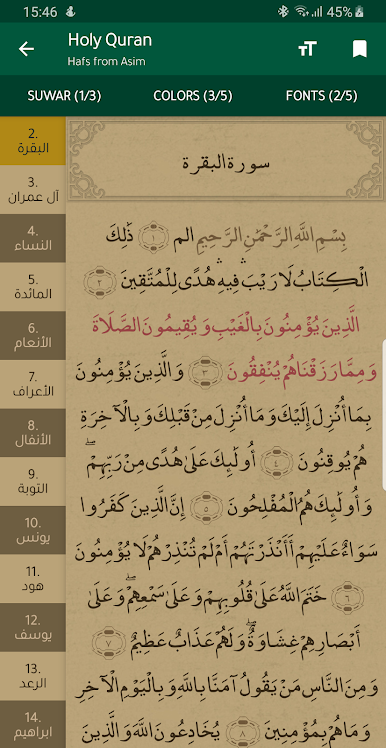 15:46 45%
Holy Quran
Hafs from Asim
SUWAR (1/3) COLORS (3/5) FONTS (2/5)
2.
البقرة
3.
آل عمران
4.
النساء
5.
المائدة
6.
الأنعام
7.
الأعراف
8.
الأنفال
9.
التوبة
10.
يونس
11.
هود
12.
يوسف
13.
الرعد
14.
ابراهيم
سورة البقرة
بِسْمِ اللَّهِ الرَّحْمَٰنِ الرَّحِيمِ الم ﴿١﴾ ذَٰلِكَ
الْكِتَابُ لَا رَيْبَ ۛ فِيهِ ۛ هُدًى لِّلْمُتَّقِينَ ﴿٢﴾
الَّذِينَ يُؤْمِنُونَ بِالْغَيْبِ وَيُقِيمُونَ الصَّلَاةَ
وَمِمَّا رَزَقْنَاهُمْ يُنفِقُونَ ﴿٣﴾ وَالَّذِينَ يُؤْمِنُونَ
بِمَا أُنزِلَ إِلَيْكَ وَمَا أُنزِلَ مِن قَبْلِكَ وَبِالْآخِرَةِ
هُمْ يُوقِنُونَ ﴿٤﴾ أُولَٰئِكَ عَلَىٰ هُدًى مِّن رَّبِّهِمْ ۖ
وَأُولَٰئِكَ هُمُ الْمُفْلِحُونَ ﴿٥﴾ إِنَّ الَّذِينَ كَفَرُوا
سَوَاءٌ عَلَيْهِمْ أَأَنذَرْتَهُمْ أَمْ لَمْ تُنذِرْهُمْ لَا يُؤْمِنُونَ
﴿٦﴾ خَتَمَ اللَّهُ عَلَىٰ قُلُوبِهِمْ وَعَلَىٰ سَمْعِهِمْ ۖ وَعَلَىٰ
أَبْصَارِهِمْ غِشَاوَةٌ ۖ وَلَهُمْ عَذَابٌ عَظِيمٌ ﴿٧﴾
وَمِنَ النَّاسِ مَن يَقُولُ آمَنَّا بِاللَّهِ وَبِالْيَوْمِ الْآخِرِ
وَمَا هُم بِمُؤْمِنِينَ ﴿٨﴾ يُخَادِعُونَ اللَّهَ وَالَّذِينَ